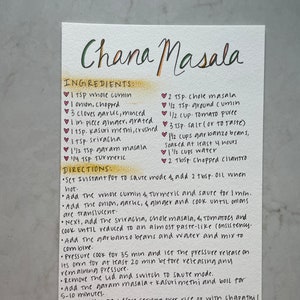 Chana Masala
INGREDIENTS:
1 tsp whole cumin
1 onion, chopped
3 cloves garlic, minced
1 in piece ginger, grated
1 tsp. kasuri methi, crushed
1 tsp. sriracha
1/2 tsp. garam masala
1/4 tsp turmeric
2 tsp. chole masala
1/2 tsp ground cumin
1/2 cup tomato puree
3 tsp. salt (or to taste)
cups garbanzo beans,
soaked at least 4 hours
1 1/2 cups water
2 tbsp chopped cilantro
DIRECTIONS:
Set Instant Pot to saute mode & add 2 tbsp. oil when
hot.
Add the whole cumin & turmeric and saute for 1 min.
Add the onion, garlic, & ginger and cook until onions
are translucent.
Next, add the sriracha, chole masala, & tomatoes and
cook until reduced to an almost paste-like consistency.
Add the garbanzo beans and water and mix to
combine.
Pressure cook for 35 min and let the pressure release on
its own for at least 20 min before releasing any
remaining pressure.
Remove the lid and switch to saute mode.
Add the garam masala + kasuri methi and boil for
5-10 minutes.